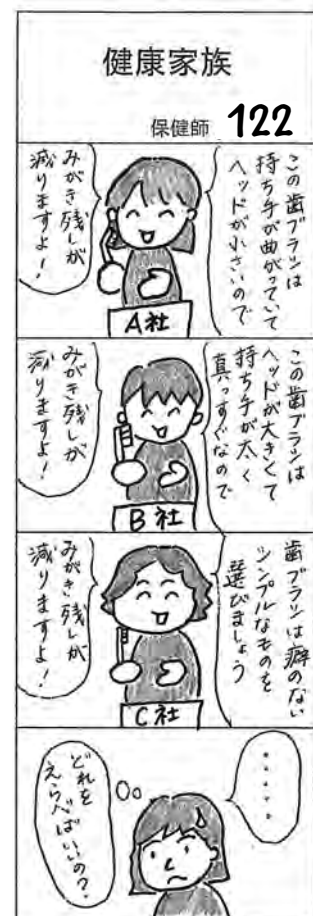 健康家族
保健師 122
この歯ブラシは
持ち手が曲がっていて
ヘッドが小さいので
みがき残しが
減りますよ！
A社
この歯ブラシは
ヘッドが大きくて
持ち手が太く
真っすぐなので
みがき残しが
減りますよ！
B社
歯ブラシは癖のない
シンプルなものを
選びましょう
みがき残しが
減りますよ！
C社
・・・・・。
どれを
えらべばいいの？